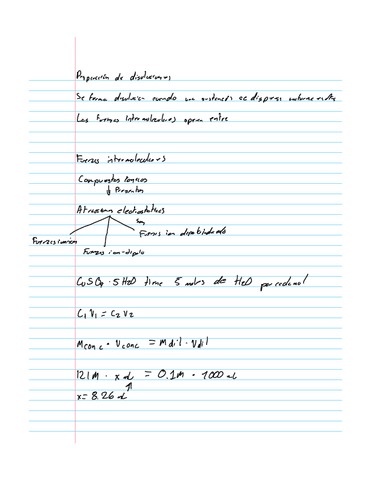 Preparación de disoluciones
Se forma disolución cuando una sustancia se dispersa uniformemente
Las fuerzas intermoleculares operan entre
Fuerzas intermoleculares
Compuestos iónicos
↓ Presentan
Atracciones electrostáticas
Son
Fuerzas ionicas
Fuerzas ion-dipolo
Fuerzas ion dipolo inducido
CuSO4 · 5 H2O tiene 5 moles de H2O por cada mol
C1 V1 = C2 V2
Mconc · Vconc = Mdil · Vdil
12.1 M · x mL = 0.1 M · 1000 mL
x = 8.26 mL